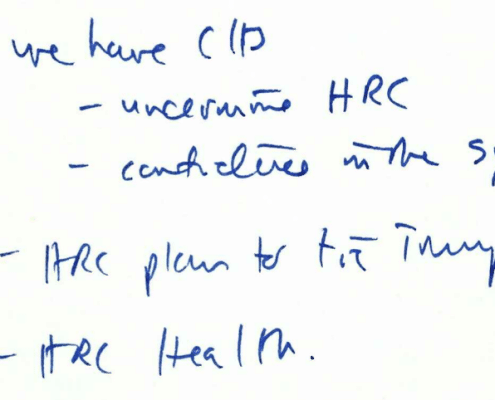 we have CI/D
- undermine HRC
- candidates in the S
- HRC plan to tie Trump
- HRC Health.